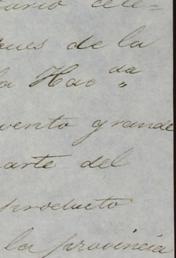 ario cele=
ques de la
la Hacda „
vento grande
arte del
producto
la provincia